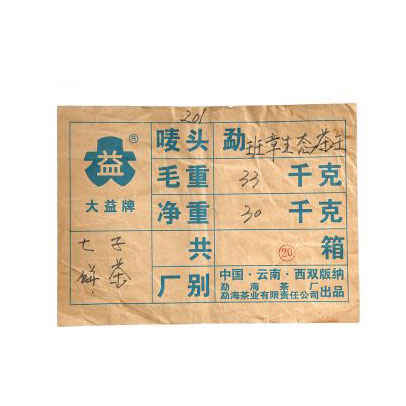 201
益 ®
大益牌
唛头 勐班章生态茶王
毛重 33 千克
净重 30 千克
七子
饼茶
共 20 箱
厂别 中国·云南·西双版纳
勐海茶厂
勐海茶业有限责任公司 出品